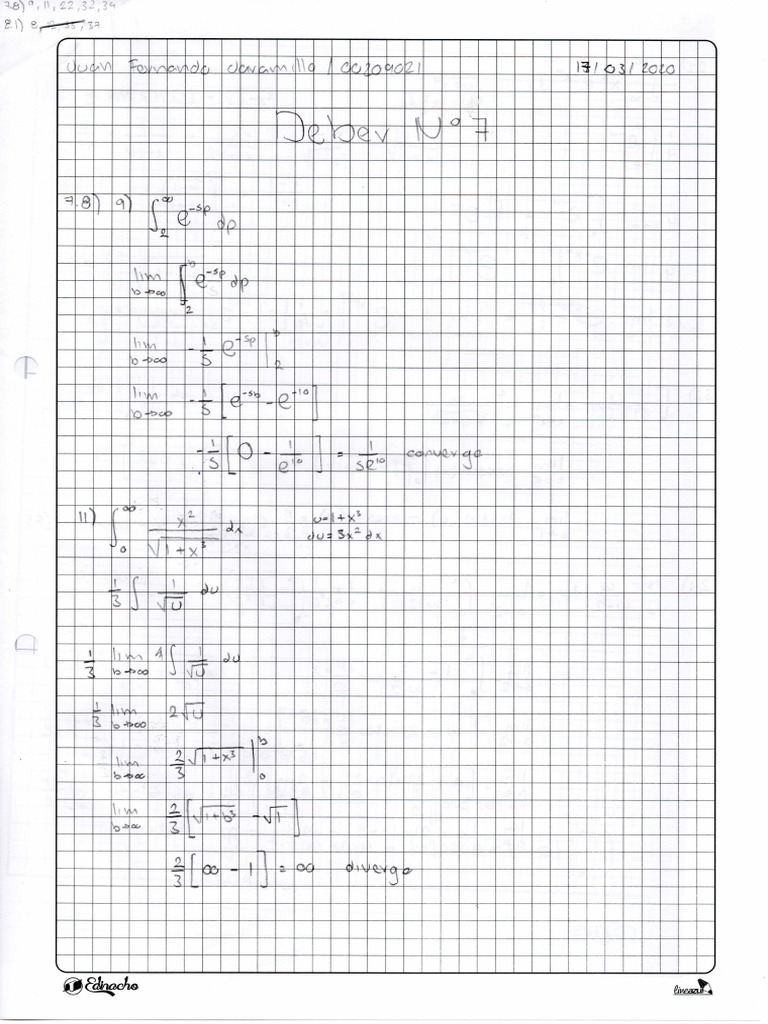 7.8) 9, 11, 22, 32, 34
8.1) 8, 12, 33, 37
Juan Fernando Jaramillo / 00209021 17/03/2020
Deber N° 7
7.8) 9) ∫₂^∞ e^(-5p) dp
lim b→∞ ∫₂^b e^(-5p) dp
lim b→∞ -1/5 e^(-5p) |₂^b
lim b→∞ -1/5 [e^(-5b) - e^(-10)]
-1/5 [0 - 1/e^(10)] = 1/5e^(10) converge
11) ∫₀^∞ x²/√(1+x³) dx u=1+x³
du=3x² dx
1/3 ∫ 1/√u du
1/3 lim b→∞ ∫ 1/√u du
1/3 lim b→∞ 2√u
lim b→∞ 2/3 √(1+x³) |₀^b
lim b→∞ 2/3 [√(1+b³) - √1]
2/3 [∞ - 1] = ∞ diverge
Edinacho lineazul